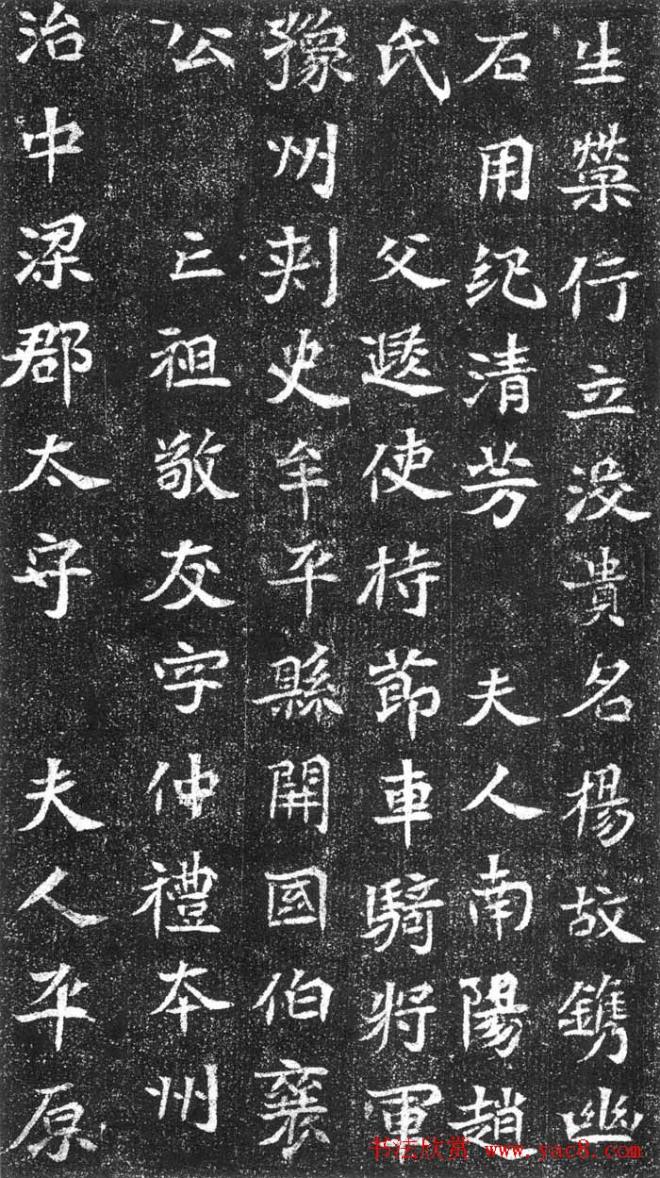 生榮行立没貴名楊故鐫幽
石用紀清芳　夫人南陽趙
氏　父遐使持節車騎將軍
豫州刾史牟平縣開國伯襄
公　亡祖敬友字仲禮本州
治中梁郡太守　夫人平原
书法欣赏 www.yac8.com